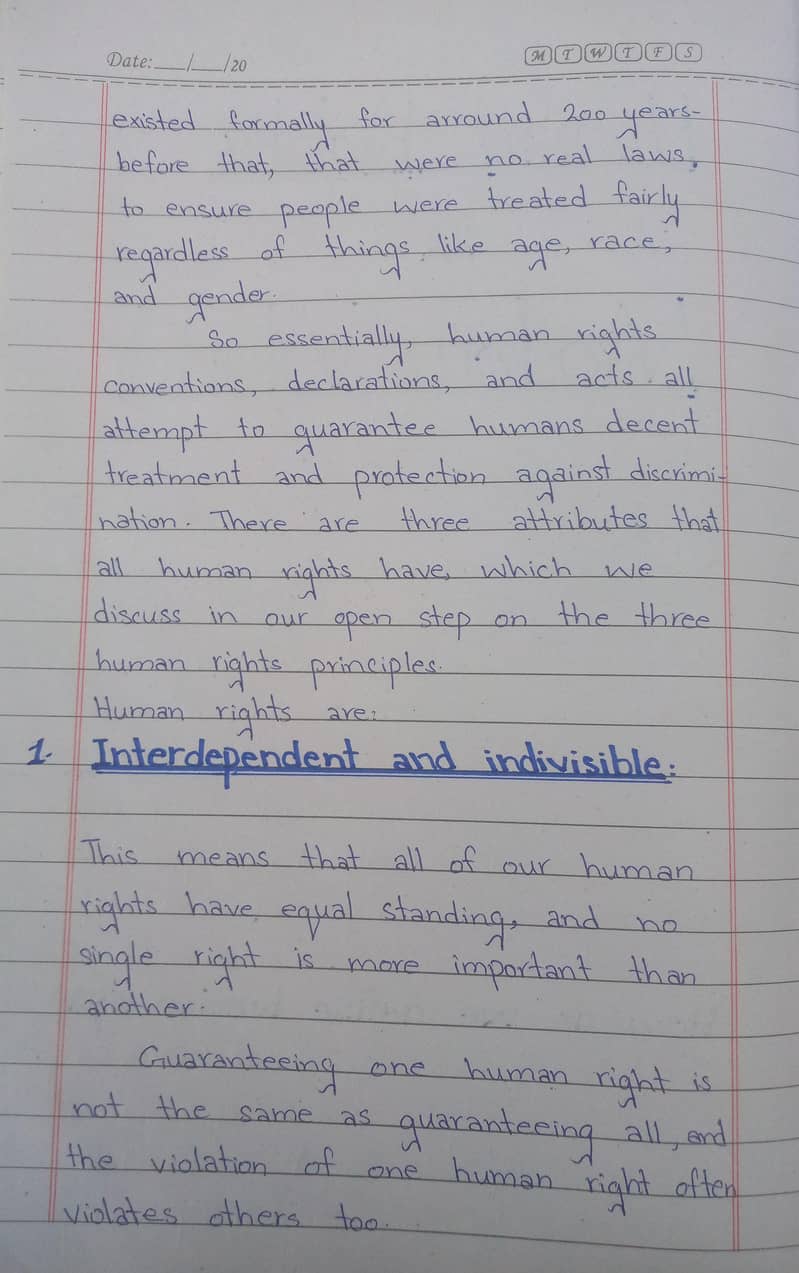 Date:___/___/20 M T W T F S
existed formally for arround 200 years-
before that, that were no real laws,
to ensure people were treated fairly
regardless of things like age, race,
and gender.
So essentially, human rights
conventions, declarations, and acts all
attempt to guarantee humans decent
treatment and protection against discrimi-
nation. There are three attributes that
all human rights have, which we
discuss in our open step on the three
human rights principles.
Human rights are:
1. Interdependent and indivisible:
This means that all of our human
rights have equal standing, and no
single right is more important than
another.
Guaranteeing one human right is
not the same as guaranteeing all, and
the violation of one human right often
violates others too.